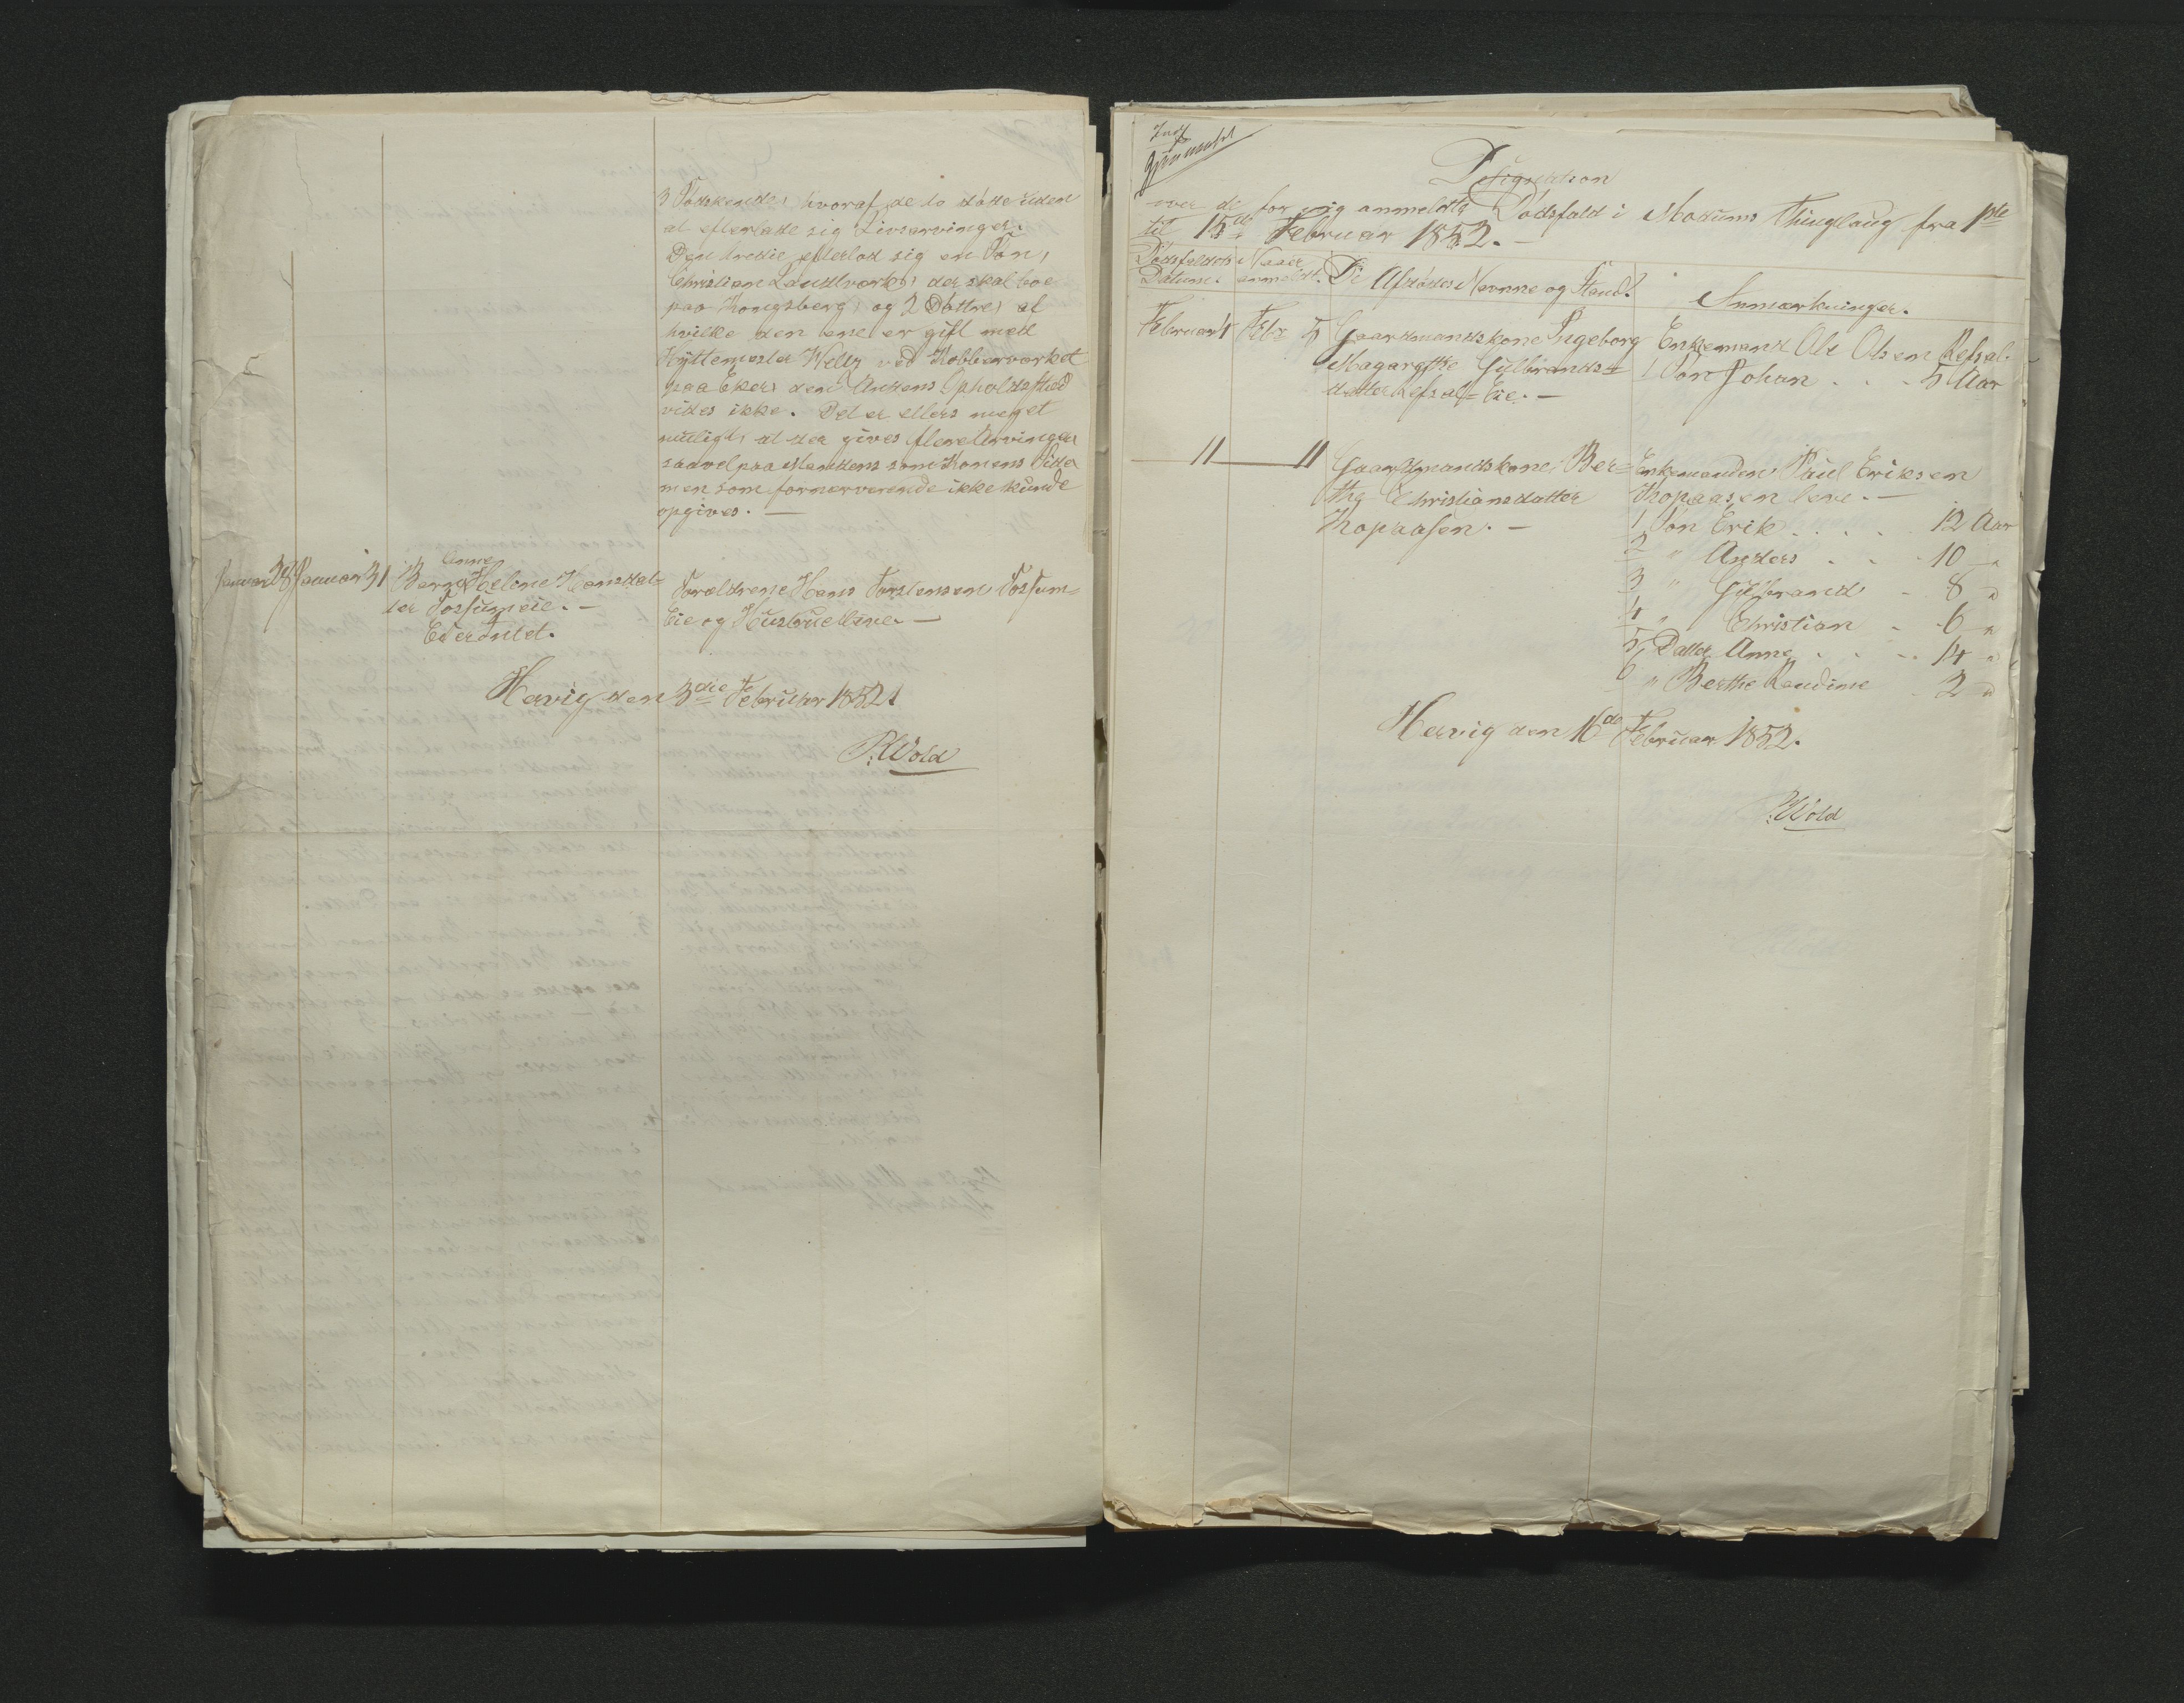 3 Sødskende, hvoraf de to døde uden
at efterlade sig Livsarvinger.
Den tredie efterlod sig en Søn,
Christian Landtværk, der skal boe
paa Kongsberg, og 2 Døttre, af
hvilke den ene er gift med
Hyttemester Welly ved Kobberværket
paa Eker, den Andens Opholdssted
vides ikke. Det er ellers meget
muligt, at der gives flere Arvinger
saavel paa Mandens som Konens Side
men som fornærværende ikke kunde
opgives. —
Januar 28 Januar 31 Barn Anne Helene Hansdat-
ter Fossumeie. —
Eier Intet.
Forældrene Hans Torstensen Fossum-
Eie og Hustrue
Hervig den 3die Februar 1852
P. Wold
Designation
over de for mig anmeldte Dødsfald i Modums Thinglaug fra 1ste
til 15de Februar 1852. —
Dødsfaldets Datum.
Naar anmeldt.
De Afdødes Navne og Stand.
Anmærkninger.
Februar 1 Febr 5 Gaardmandskone Ingeborg
Magarethe Gulbrands-
datter Refsal-Eie. —
Enkemand Ole Olsen Refsal-
1 Søn Johan . . . 5 Aar
— 11 — 11 Gaardmandskone Ber-
the Christiansdatter
Kopaasen. —
Enkemanden Paul Eriksen
Kopaasen —
1 Søn Erik . . . . 12 Aar
2 " Anders . . . 10 "
3 " Gulbrand . 8 "
4 " Christian . 6 "
5 Datter Anne . . . 14 "
6 " Berthe Randine . 2 "
Hervig den 16de Februar 1852.
P. Wold